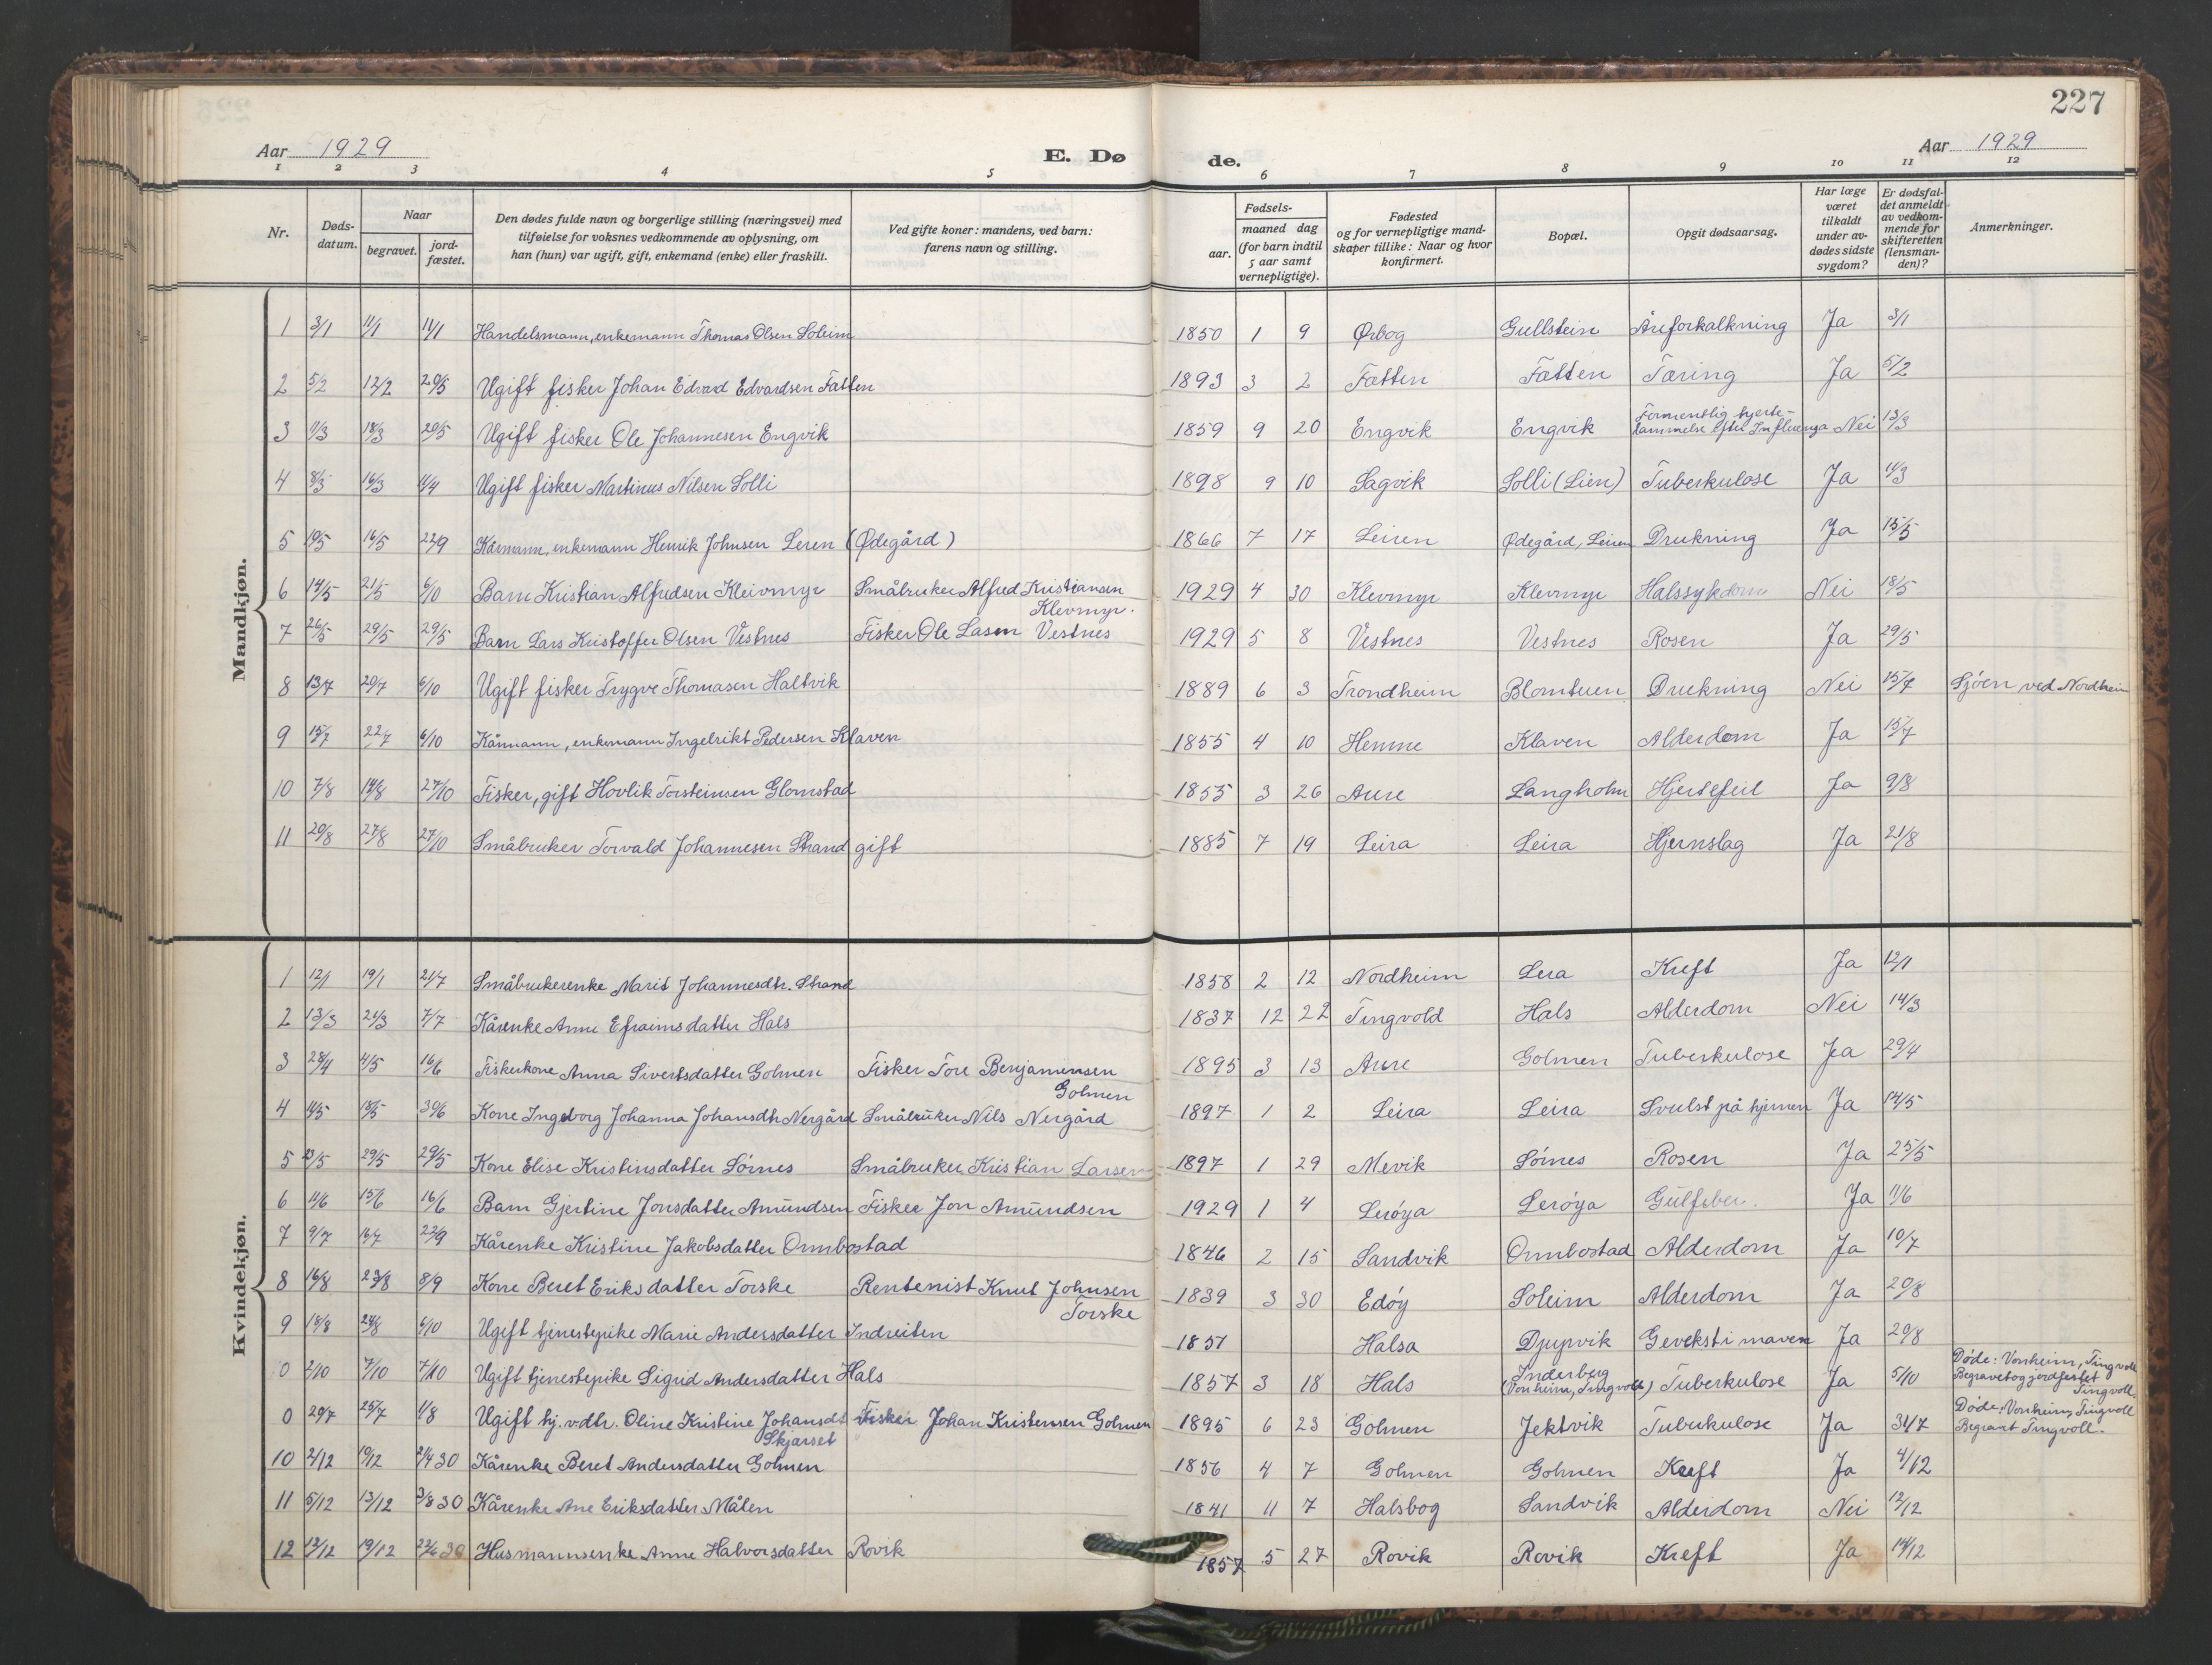 227
Aar 1929
E. Dø
de.
Aar 1929
1 2 3 4 5 6 7 8 9 10 11 12
Nr.
Døds-
datum.
Naar
begravet.
jord-
fæstet.
Den dødes fulde navn og borgerlige stilling (næringsvei) med
tilføielse for voksnes vedkommende av oplysning, om
han (hun) var ugift, gift, enkemand (enke) eller fraskilt.
Ved gifte koner: mandens, ved barn:
farens navn og stilling.
Fødsels-
aar.
maaned dag
(for barn indtil
5 aar samt
vernepligtige).
Fødested
og for vernepligtige mand-
skaper tillike: Naar og hvor
konfirmert.
Bopæl.
Opgit dødsaarsag.
Har læge
været
tilkaldt
under av-
dødes sidste
sygdom?
Er dødsfal-
det anmeldt
av vedkom-
mende for
skifteretten
(lensman-
den)?
Anmerkninger.
Mandkjøn.
1 3/1 11/1 11/1 Handelsmann, enkemann Thomas Olsen Soleim 1850 1 9 Ørbog Gullstein Åreforkalkning Ja 3/1
2 5/2 12/2 20/5 Ugift fisker Johan Edvard Edvardsen Fætten 1893 3 2 Fætten Fætten Tæring Ja 5/2
3 11/3 18/3 20/5 Ugift fisker Ole Johannesen Engvik 1859 9 20 Engvik Engvik Formentlig hjerte-
lammelse efter Influenza Nei 13/3
4 8/3 16/3 11/4 Ugift fisker Martinus Nilsen Solli 1898 9 10 Sagvik Solli (Lien) Tuberkulose Ja 11/3
5 10/5 16/5 22/9 Kårmann, enkemann Henrik Johnsen Leren (Ødegård) 1866 7 17 Leiren Ødegård, Leiren Drukning Ja 15/5
6 14/5 21/5 6/10 Barn Kristian Alfredsen Kleivmyr Småbruker Alfred Kristiansen
Klevmyr. 1929 4 30 Klevmyr Klevmyr Halssykdom Nei 18/5
7 26/5 29/5 29/5 Barn Lars Kristoffer Olsen Vestnes Fisker Ole Lasen Vestnes 1929 5 8 Vestnes Vestnes Rosen Ja 29/5
8 13/7 20/7 6/10 Ugift fisker Trygve Thomasen Haltvik 1889 6 3 Trondheim Blomtuen Drukning Nei 15/7 Sjöen ved Nordheim
9 15/7 22/7 6/10 Kårmann, enkemann Ingebrikt Pedersen Klaven 1855 4 10 Hemne Klaven Alderdom Ja 15/7
10 7/8 14/8 27/10 Fisker, gift Hovlik Torsteinsen Glomstad 1855 3 26 Aure Langholm Hjertefeil Ja 9/8
11 20/8 27/8 27/10 Småbruker Torvald Johannesen Strand gift 1885 7 19 Leira Leira Hjernslag Ja 21/8
Kvindekjøn.
1 12/1 19/1 21/7 Småbrukerenke Marit Johannesdtr. Strand 1858 2 12 Nordheim Lera Kreft Ja 12/1
2 13/3 21/3 7/7 Kårenke Anne Efraimsdatter Hals 1837 12 22 Tingvold Hals Alderdom Nei 14/3
3 28/4 4/5 16/6 Fiskerkone Anna Sivertsdatter Golmen Fisker Tore Benjaminsen
Golmen 1895 3 13 Aure Golmen Tuberkulose Ja 29/4
4 11/5 18/5 30/6 Kone Ingeborg Johanna Johansdtr Nergård Småbruker Nils Nergård 1897 1 2 Leira Leira Svulst på hjernen Ja 14/5
5 23/5 29/5 29/5 Kone Elise Kristinsdatter Sörnes Småbruker Kristian Larsen 1897 1 29 Mevik Sörnes Rosen Ja 25/5
6 11/6 15/6 16/6 Barn Gjertine Jonsdatter Amundsen Fisker Jon Amundsen 1929 1 4 Leröya Leröya Gulfeber. Ja 11/6
7 9/7 16/7 22/9 Kårenke Kristine Jakobsdatter Ormbostad 1846 2 15 Sandvik Ormbostad Alderdom Ja 10/7
8 16/8 23/8 8/9 Kone Beret Eriksdatter Torske Rentenist Knut Johnsen
Torske 1839 3 30 Edöy Soleim Alderdom Ja 20/8
9 18/8 24/8 6/10 Ugift tjenestepike Marie Andersdatter Indreiten 1851 Halsa Djupvik Gevekst i maven Ja 20/8
0 2/10 7/10 7/10 Ugift tjenestepike Sigrid Andersdatter Hals 1857 3 18 Hals Inderberg
(Vonheim, Tingvoll) Tuberkulose Ja 5/10 Döde: Vonheim, Tingvoll
Begravet og jordfestet
Tingvoll
0 20/7 25/7 1/8 Ugift hj. vdtr. Oline Kristine Johansdt Fisker Johan Kristensen Golmen
Skjærset 1895 6 23 Golmen Jektvik Tuberkulose Ja 31/7 Döde: Vonheim, Tingvoll
Begravt Tingvoll.
10 2/12 10/12 21/4 30 Kårenke Beret Andersdatter Golmen 1856 4 7 Golmen Golmen Kreft Ja 4/12
11 5/12 13/12 3/8 30 Kårenke Ane Eriksdatter Målen 1841 11 7 Halsbog Sandvik Alderdom Nei 12/12
12 12/12 19/12 22/6 30 Husmannsenke Anne Halvorsdatter Rovik 1857 5 27 Rovik Rovik Kreft Ja 14/12